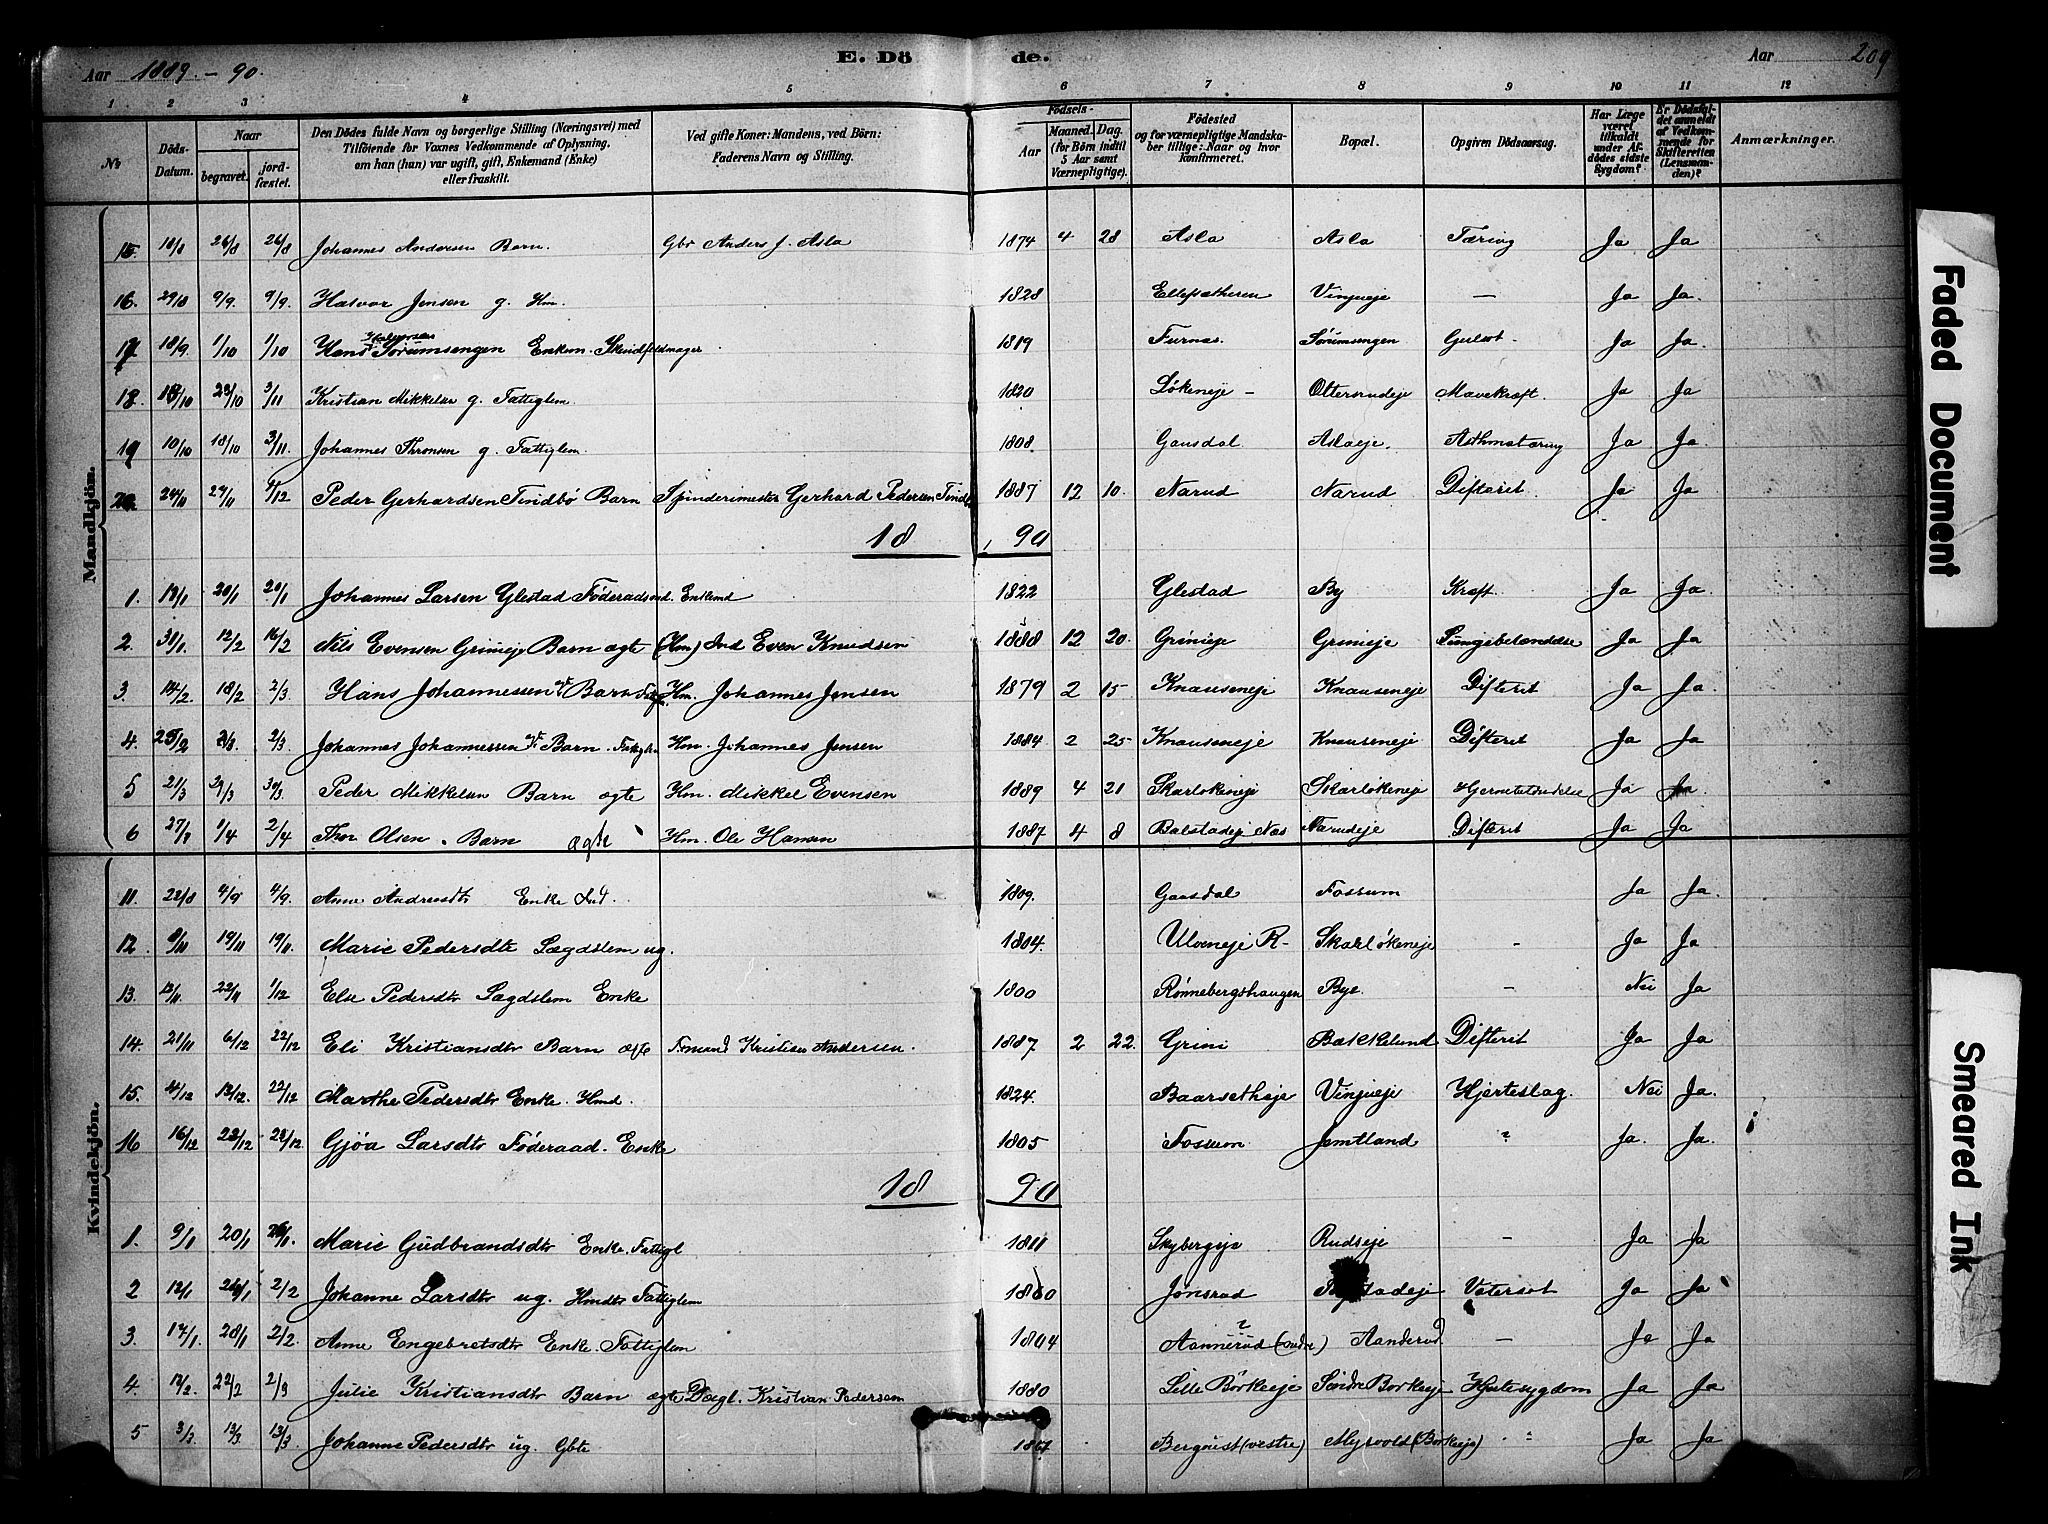 Aar 1889.-90. E. Dö de. Aar 209
1 2 3 4 5 6 7 8 9 10 11 12
No Döds-Datum. Naar begravet. jordfæstet. Den Dödes fulde Navn og borgerlige Stilling (Næringsvei) med Tilföiende for Voxnes Vedkommende af Oplysning, om han (hun) var ugift, gift, Enkemand (Enke) eller fraskilt. Ved gifte Koner: Mandens, ved. Börn: Faderens Navn og Stilling. Födsels- Aar Maaned. Dag. (for Börn indtil 5 Aar samt Værnepligtige). Födested og for værnepligtige Mandskaber tillige: Naar og hvor konfirmeret. Bopæl. Opgiven Dödsaarsag. Har Læge været tilkaldt under Afdödes sidste Sygdom? Er Dödsfaldet anmeldt af Vedkommende for Skifteretten (Lensmanden)? Anmærkninger.
Mandkjön.
15 18/8 26/8 26/8 Johannes Andersen Barn. Gbr Anders J. Asla 1874 4 28 Asla Asla Tæring Ja Ja
16. 29/8 9/9. 9/9. Halvor Jensen g. Hm. 1828 Ellefsætheren Vinjueje — Ja Ja.
17 18/9 1/10 1/10 Hans Halvorsen Sørumsengen Enkm. Skindfeldmager 1819 Furnes. Sørumsengen Gulsot. Ja Ja
18. 18/10 23/10 3/11 Kristian Mikkelsen g. Fattiglem. 1820 Løkeneje - Ottersrudeje Mavekræft. Ja Ja.
19 10/10 18/10 3/11. Johannes Thronsen g. Fattiglem. 1808. Gausdal. Aslaeje. Asthmatæring Ja Ja.
20. 24/11 29/11 4/12 Peder Gerhardsen Tindbø Barn Spinderimester Gerhard Pedersen Tindbø 1887 12 10. Narud Narud Difterit. Ja Ja
18 90
1. 13/1 20/1 20/1 Johannes Larsen Glestad Føderaadsmd. Enkemd 1822 Glestad By Kræft. Ja Ja.
2. 31/1. 12/2 16/2 Nils Evensen Grinieje Barn ægte (Hm) Ind Even Knudsen 1888 12 20. Grinieje Grinieje Lungebetændelse Ja Ja
3. 14/2. 18/2 2/3. Hans Johannessen Barn Hm. Johannes Jensen 1879 2 15 Knauseneje Knauseneje Difterit Ja Ja
4. 25/2 2/3. 2/3 Johannes Johannessen Barn. Hm. Johannes Jensen 1884 2 25 Knauseneje Knauseneje Difterit Ja Ja
5 21/3 29/3 30/3. Peder Mikkelsen Barn ægte Hm. Mikkel Evensen 1889 4 21 Skarløkeneje Skarløkeneje Hjernebetændelse Ja Ja
6 27/3 1/4 2/4 Thor Olsen. Barn ægte Hm. Ole Hansen 1887 4 8 Balstadeje Næs Narudeje Difterit Ja Ja
Kvindekjön.
11. 22/8 4/9 4/9. Anne Andreasdtr Enke Ind. 1809. Gausdal Fossum Ja Ja.
12. 8/11 19/11 19/11. Marie Pedersdtr Lægdslem ug. 1804. Ulveneje R- Skarløkeneje - Ja Ja.
13. 13/11. 22/11 1/12 Else Pedersdtr Lægdslem Enke 1800 Rønnebergshaugen Bye. - Nei Ja
14. 21/11 6/12 22/12 Eli Kristiansdtr Barn ægte Kristian Andersen. 1887 2 22. Grini Bækkelund Difterit Ja Ja
15. 4/12 13/12. 22/12 Marthe Pedersdtr Enke. Hmd. 1824. Baarsetheje Vinjueje Hjerteslag. Nei Ja.
16 16/12 23/12 28/12 Gjøa Larsdtr Føderaad. Enke 1805 Fossum. Jemtland " Ja. Ja.
18 90
1. 9/1 20/1 26/1. Marie Gudbrandsdtr Enke. Fattigl 1811 Skybergeje Rudseje - Ja Ja
2 12/1 26/1 2/2 Johanne Larsdtr ug. Hmdtr Fattiglem 1860 Jønsrud Vatersot Ja Ja
3. 17/1. 28/1 2/2. Anne Engebretsdtr Enke. Fattiglem 1804 Aannerud (øvdre) Aanderud. - Ja Ja
4. 13/2. 22/2 2/3 Julie Kristiansdtr Barn ægte Dagl. Kristian Pedersen 1880 Lille Børkeeje Søndre Børkeeje Hjertesygdom Ja Ja
5 3/3. 13/3 13/3 Johanne Pedersdtr ug. Gbtr 1867 Bergust (vestre) Myrvold (Børkeeje) " Ja Ja
Faded Document
Smeared Ink